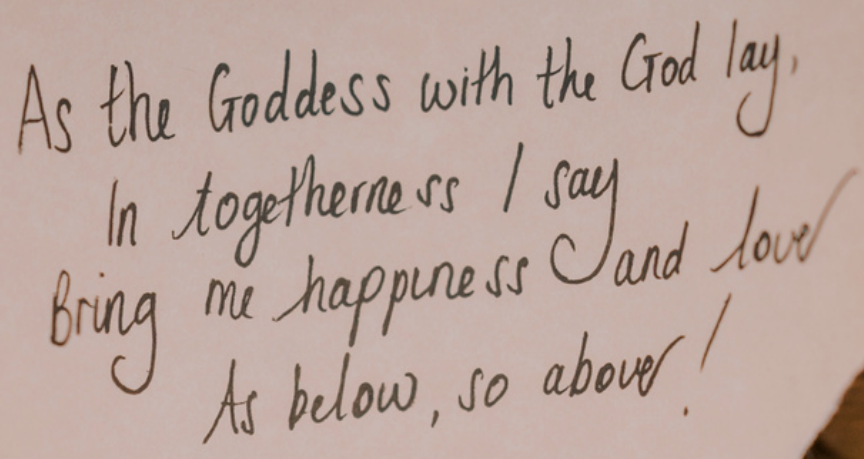 As the Goddess with the God lay,
In togetherness I say
Bring me happiness and love
As below, so above!